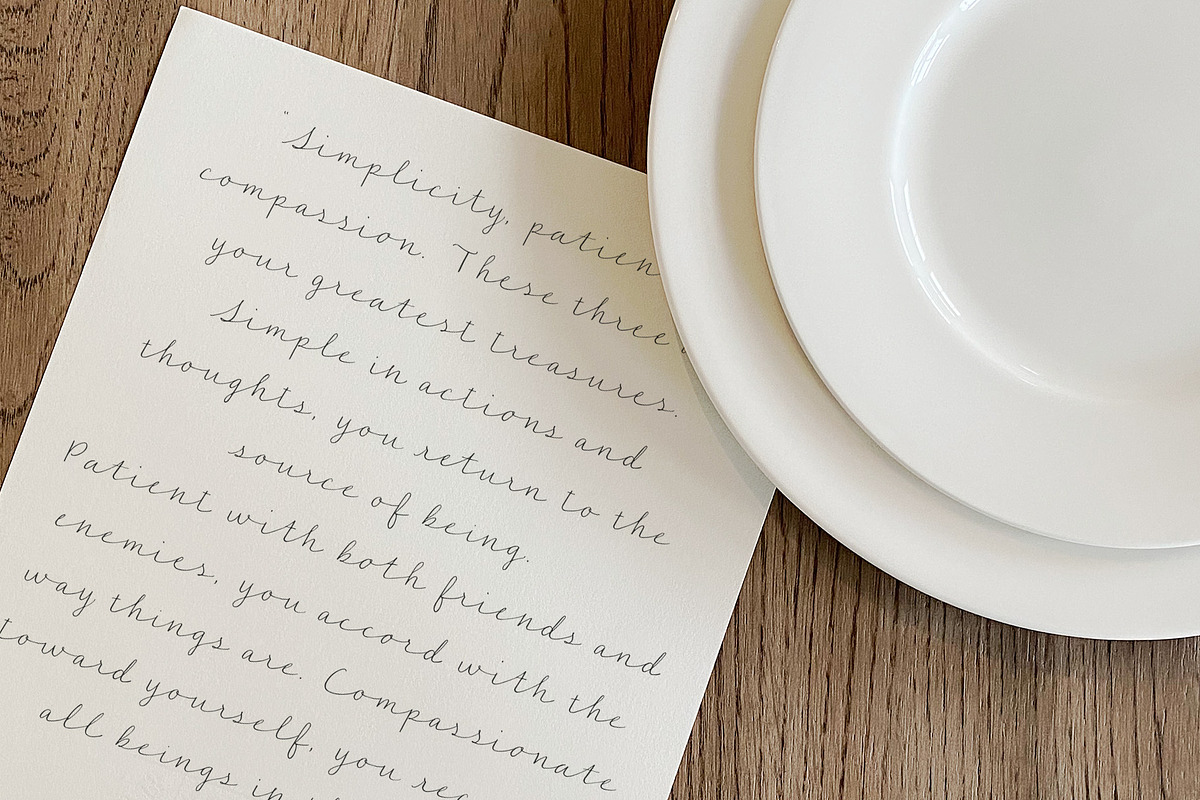 "Simplicity, patien
compassion. These three
your greatest treasures.
Simple in actions and
thoughts, you return to the
source of being.
Patient with both friends and
enemies, you accord with the
way things are. Compassionate
toward yourself, you rec
all beings in